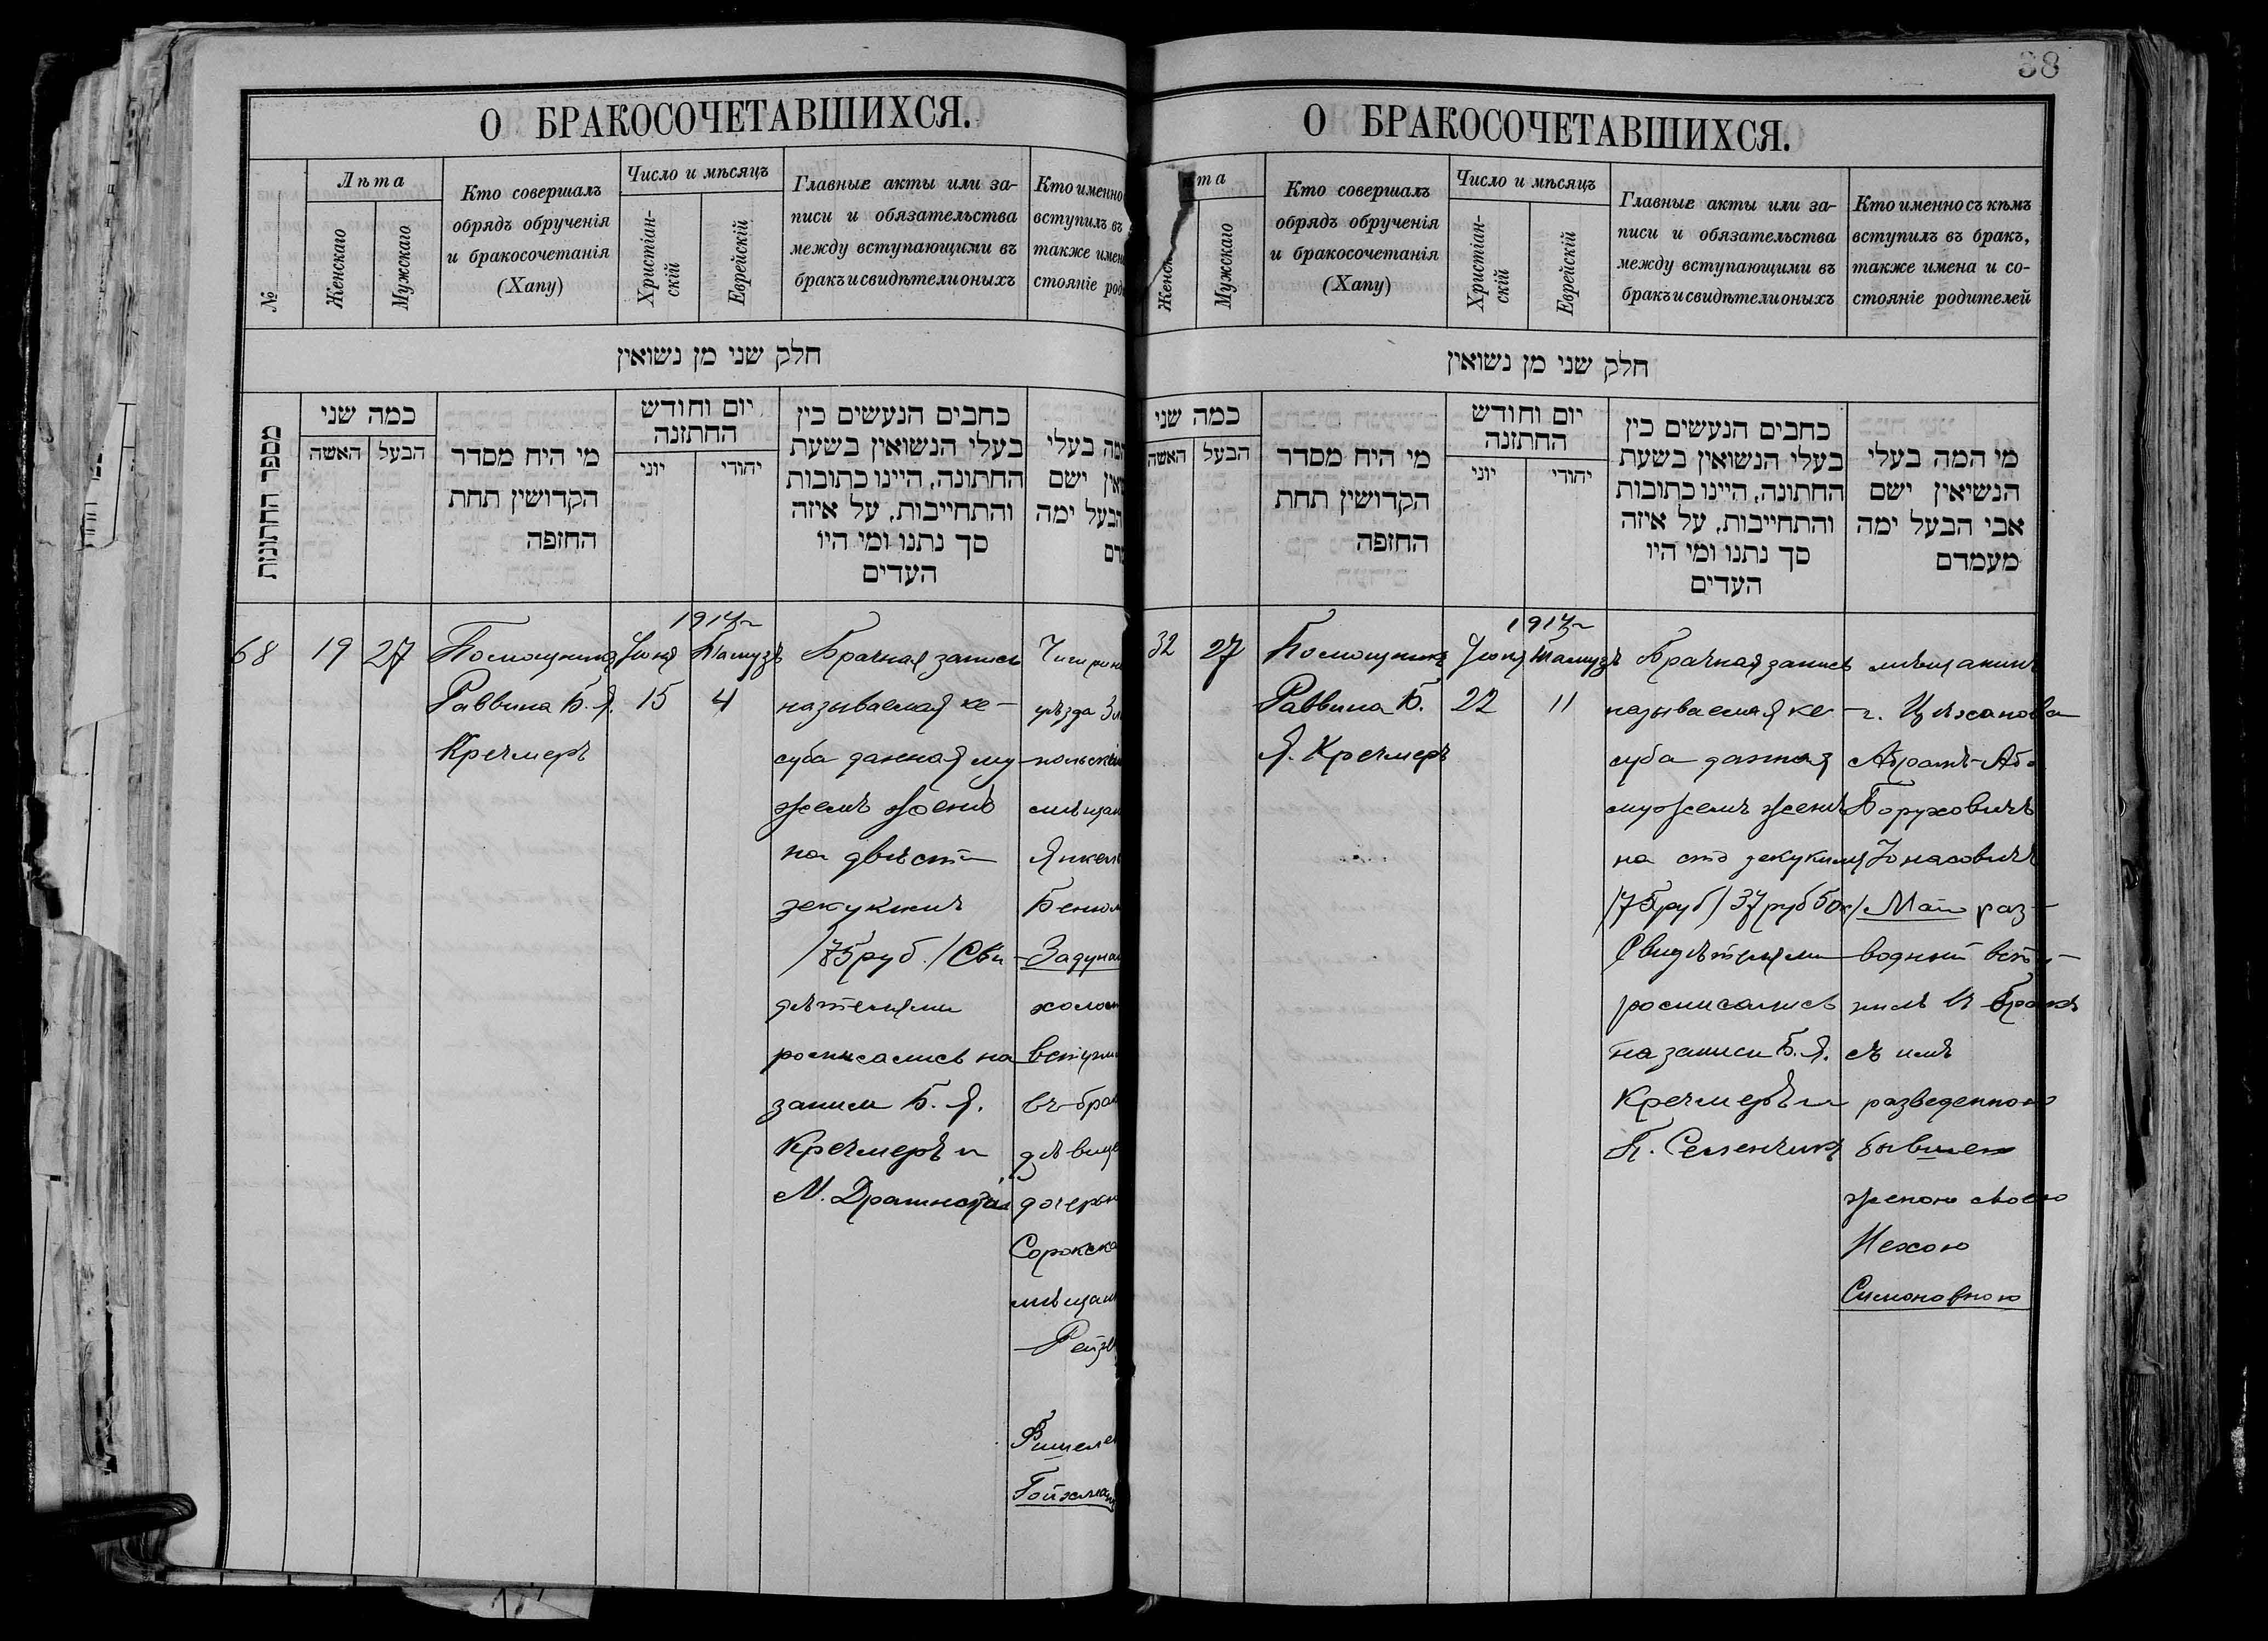 38
О БРАКОСОЧЕТАВШИХСЯ.
№
Лѣта
Женскаго
Мужскаго
Кто совершалъ
обрядъ обрученія
и бракосочетанія
(Хапу)
Число и мѣсяцъ
Христіан-
скій
Еврейскій
Главные акты или за-
писи и обязательства
между вступающими въ
бракъ и свидѣтели оныхъ
Кто именно
вступилъ въ
также имен
стояніе род
חלק שני מן נשואין
מספר החתונות
כמה שני
האשה
הבעל
מי היח מסדר
הקדושין תחת
החופה
יום וחודש
החתונה
יוני
יהודי
כחבים הנעשים בין
בעלי הנשואין בשעת
החתונה, היינו כתובות
והתחייבות, על איזה
סך נתנו ומי היו
העדים
המה בעלי
ישם
הבעל ימה
68
19
27
Помощникъ
Раввина Б. Я.
Кречмеръ
1914 г
Іюня
15
Тамузъ
4
Брачная запись
называемая ке-
суба данная му-
жемъ женѣ
на двѣсти
зекукимъ
/75 руб./ Сви-
дѣтелями
росписались на
записи Б. Я.
Кречмеръ и
М.
уѣзда
мѣщан
Янкель
Задуна
холост
вступил
въ бра
дѣвице
дочерью
Сорокска
мѣщан
Гойхман
О БРАКОСОЧЕТАВШИХСЯ.
та
Женск
Мужскаго
Кто совершалъ
обрядъ обрученія
и бракосочетанія
(Хапу)
Число и мѣсяцъ
Христіан-
скій
Еврейскій
Главные акты или за-
писи и обязательства
между вступающими въ
бракъ и свидѣтели оныхъ
Кто именно съ кѣмъ
вступилъ въ бракъ,
также имена и со-
стояніе родителей
חלק שני מן נשואין
כמה שני
האשה
הבעל
מי היח מסדר
הקדושין תחת
החופה
יום וחודש
החתונה
יוני
יהודי
כחבים הנעשים בין
בעלי הנשואין בשעת
החתונה, היינו כתובות
והתחייבות, על איזה
סך נתנו ומי היו
העדים
מי המה בעלי
הנשיאין ישם
אבי הבעל ימה
מעמדם
32
27
Помощникъ
Раввина Б.
Я. Кречмеръ
1914 г
Іюня
22
Тамузъ
11
Брачная запись
называемая ке-
суба данная
мужемъ женѣ
на сто зекукимъ
/75 руб/ 37 руб 50 к/
Свидѣтелями
росписались
на записи Б. Я.
Кречмеръ и
П. Семенчикъ
мѣщанинъ
г. Цѣханова
Абрамъ-Аба
Боруховичъ
Іонасовичъ
раз-
водный всту-
пилъ въ бракъ
съ имъ
разведенною
бывшею
женою своею
Нехою
Симоновною